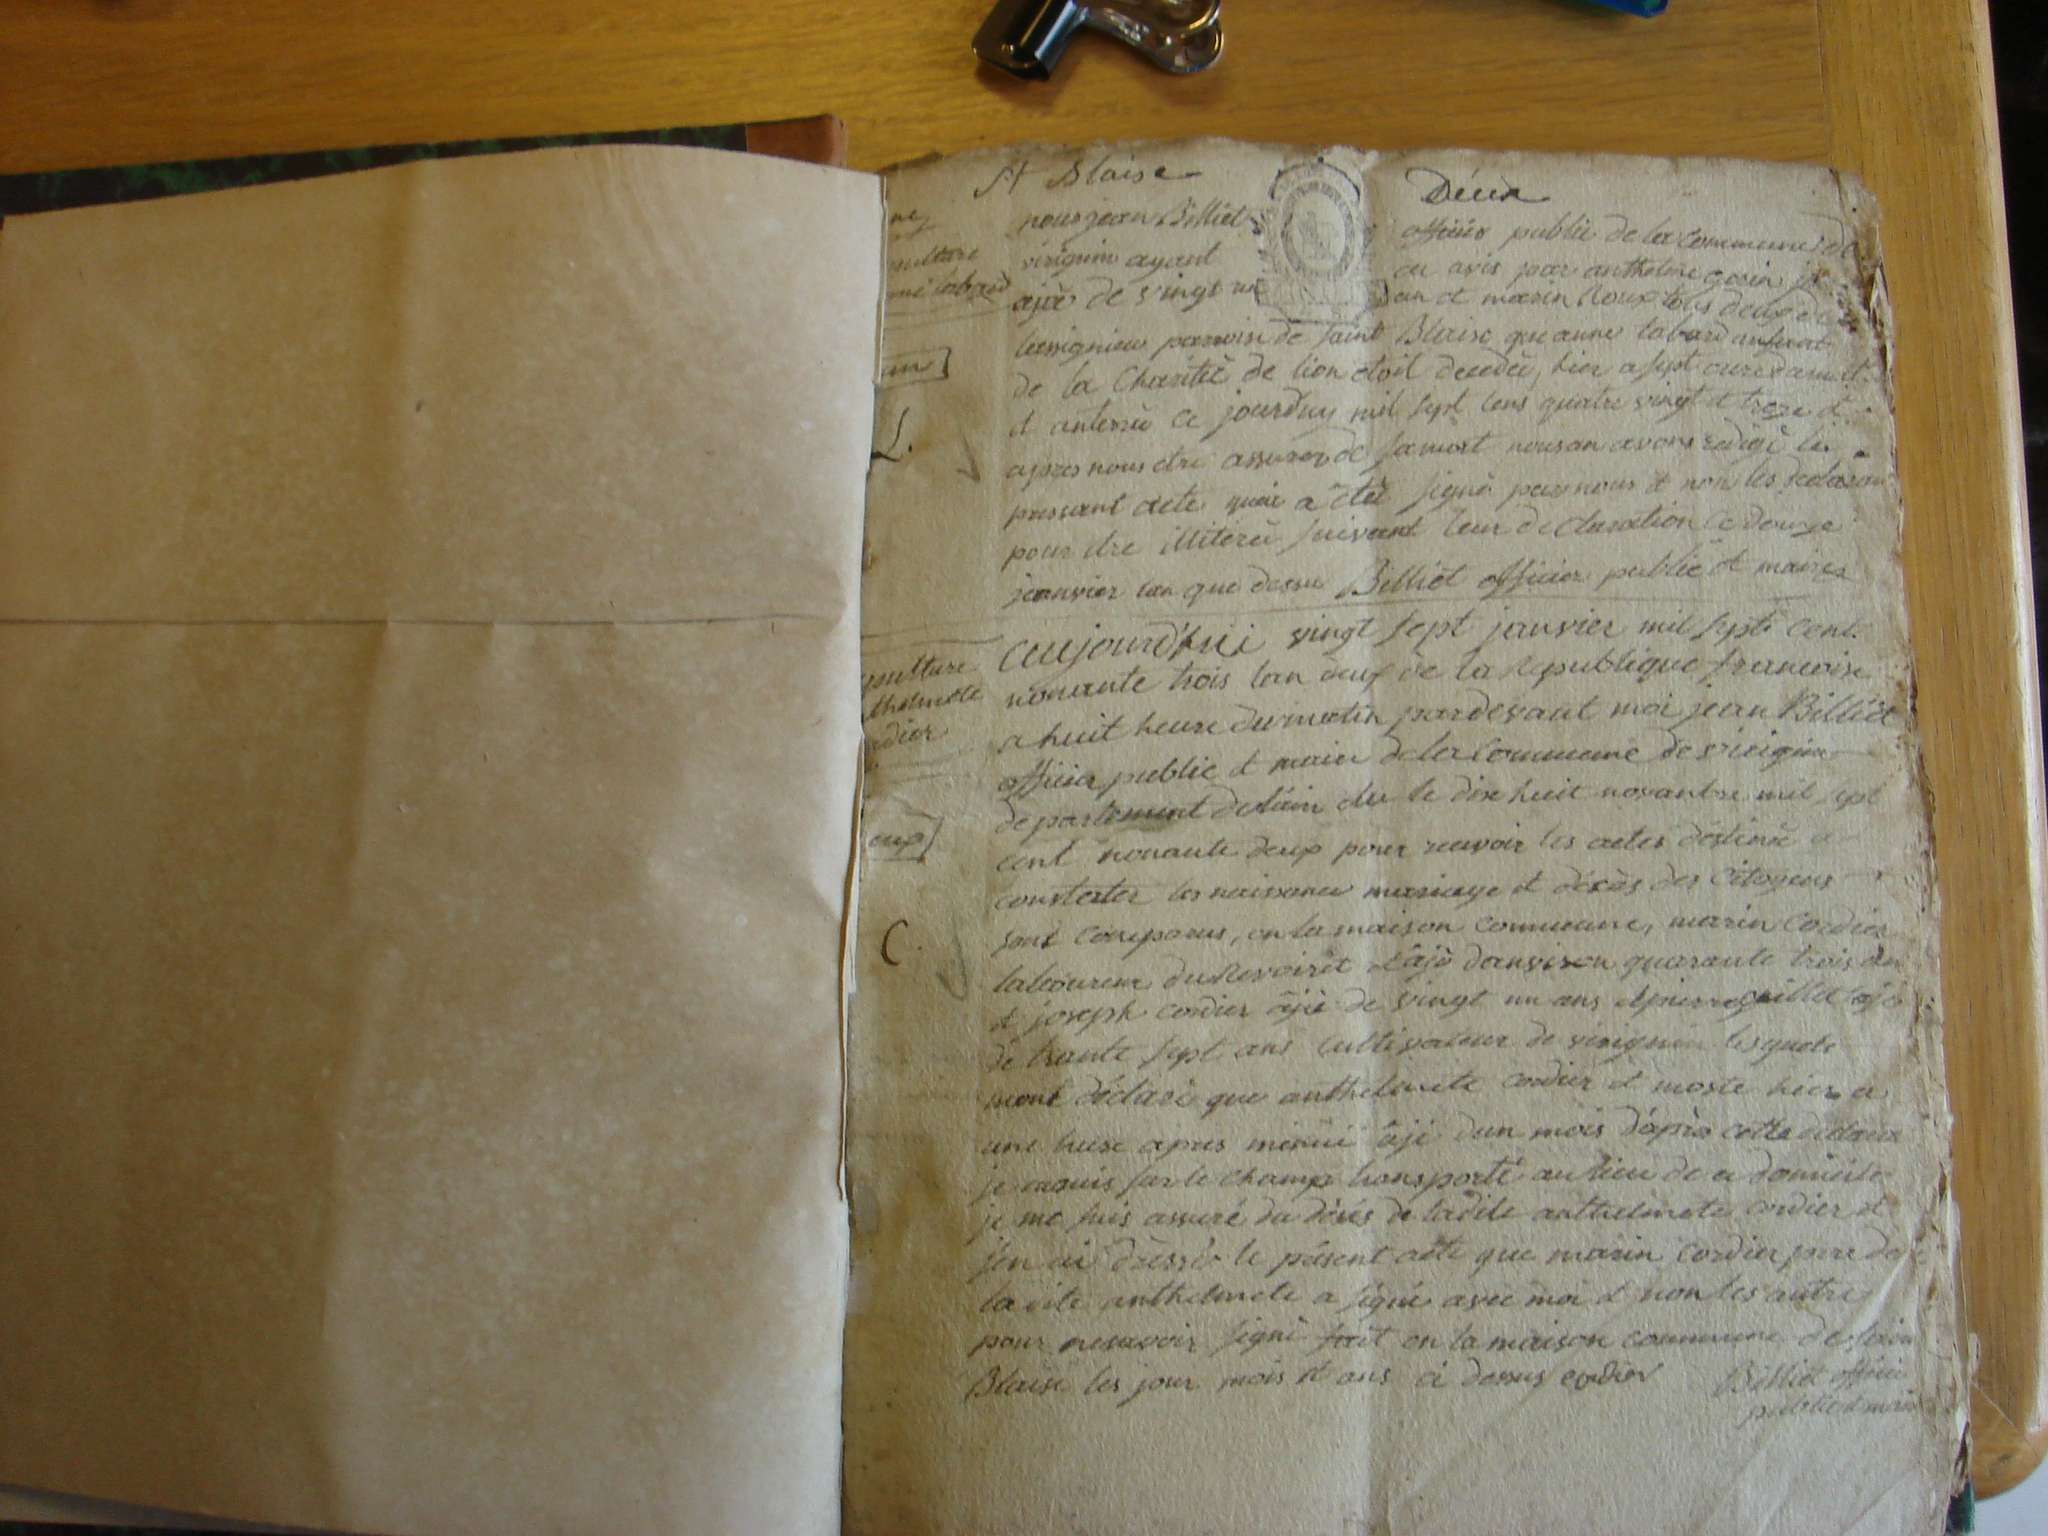 St Blaise
Décès
nous jean Billiet officier public de la commune de
virignin ayant eu avis par anthelme
agée de vingt un an et marin Roux tous deux de
lassignieu parroisse de saint Blaise que anne labard anfant
de la Charitée de lion etoit decedée hier a sept oure
et anterrée ce jourduy mil sept cens quatre vingt et treze et
apres nous etre assurer de sa mort nous an avons redigé le
pressant acte quie a étéé signé par nous et non les declaran
pour etre illiteré suivant leur declaration ce douze
janvier lan que dessu Billiet officier public et maire
pulture
anne labard
un
L.
aujourd'hui vingt sept janvier mil sept cent
nonante trois lan deux de la republique francoise
a huit heure du matin pardevant moi jean Billiet
officier public et maire de la commune de virignin
departement de lain elu le dix huit novanbre mil sept
cent nonante deux pour recevoir les actes destiné a
constater les naissance mariage et décès des citoyens
sont comparus, en la maison commune, marin Cordier
laboureur du Revoiret âjé danviron quarante trois an
et joseph cordier âjé de vingt un ans et pierre aje
de trante sept ans cultivateur de virignin lesquels
mont déclaré que anthelmete cordier et morte hier a
une heure apres minui âjé dun mois dáprès cette declara
je mauis sur le champ transporté au lieu de ce domicile
je me suis assuré du désés de ladite anthelmete cordier et
jen ai dressér le présent acte que marin cordier pere de
la dite anthelmete a signé avec moi et non les autre
pour ne savoir signé fait en la maison commune de sain
Blaise les jour mois et ans ci dessus cordier Billiet officier
public et maire
pulture
thelmete
rdier
eux
C.